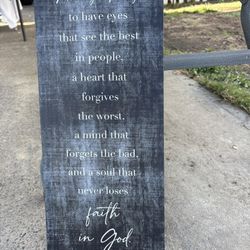 to have eyes
that see the best
in people,
a heart that
forgives
the worst,
a mind that
forgets the bad,
and a soul that
never loses
faith
in God.